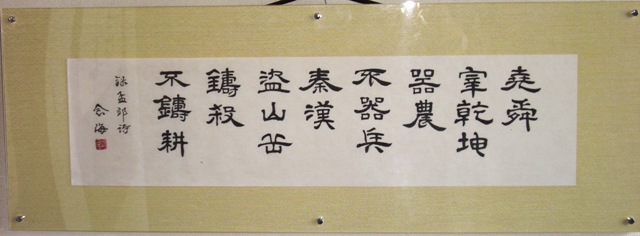 堯舜
宰乾坤
器農
不器兵
秦漢
盜山岳
鑄殺
不鑄耕
錄孟郊詩
海